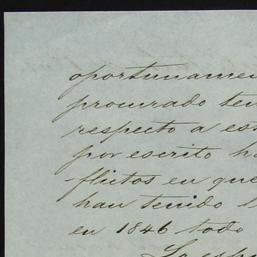 oportunamen
procurado ten
respecto a es
por escrito ha
flictos en que
han tenido l
en 1846 todo
La espe